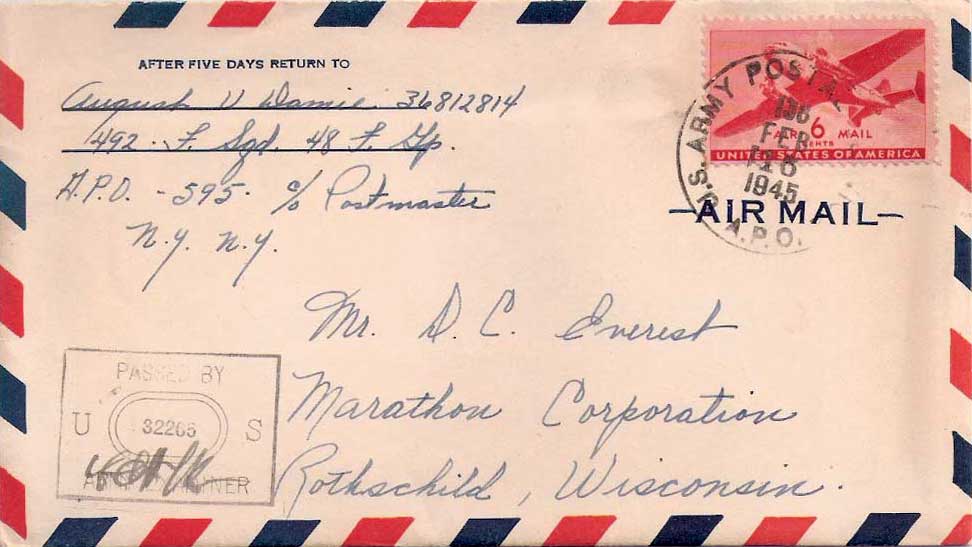 AFTER FIVE DAYS RETURN TO
August V Damie 36812814
492. F. Sqd. 48 F. Gp.
A.P.O. - 595. c/o Postmaster
N.Y. N.Y.
U.S. ARMY POSTAL
A.P.O.
FEB
1945
6
AIR MAIL
CENTS
UNITED STATES OF AMERICA
-AIR MAIL-
Mr. D. C. Everest
Marathon Corporation
Rothschild, Wisconsin.
PASSED BY
U 32265 S
ARMY EXAMINER